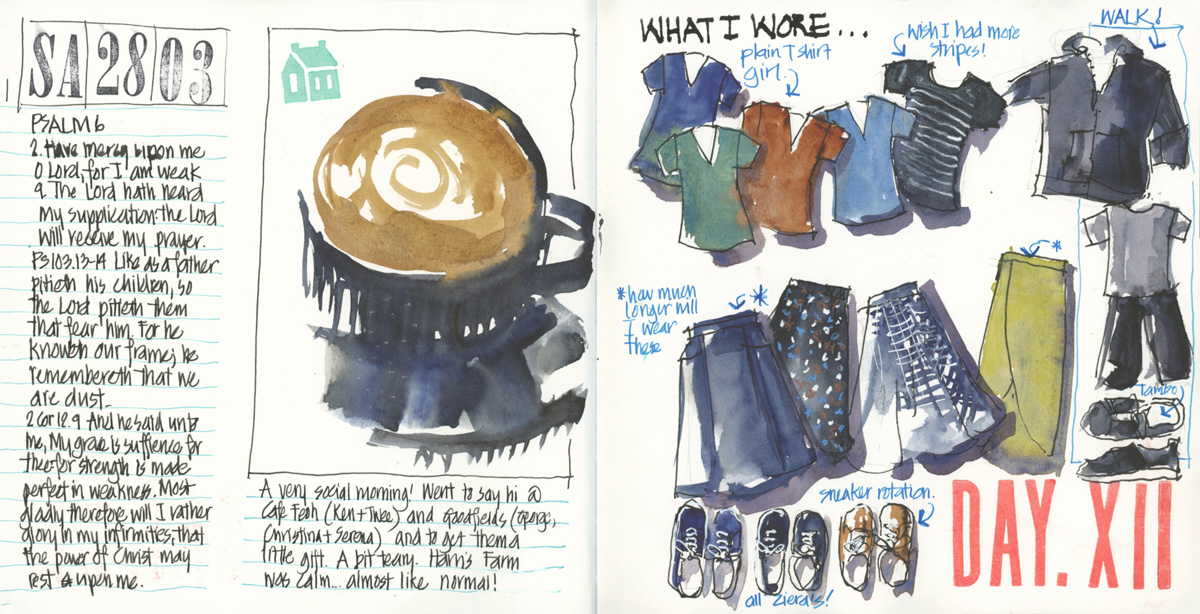 SA 28 03
PSALM 6
2. Have mercy upon me
O Lord, for I am weak
9. The Lord hath heard
My supplication: the Lord
will receive my prayer.
Ps 103.13-14 Like as a father
pitieth his children, so
the Lord pitieth them
that fear him. For he
knoweth our frame; he
remembereth that we
are dust.
2 Cor 12.9 And he said unto
me, My grace is sufficence for
thee: for strength is made
perfect in weakness. Most
gladly therefore will I rather
glory in my infirmities, that
the power of Christ may
rest upon me.
A very social morning! Went to say hi @
Cafe (Ken + Twee) and Goodfields (George,
Christina + Serena) and to get them a
little gift. A bit teary. Harris Farm
was calm... almost like normal!
WHAT I WORE...
plain T shirt
girl.
wish I had more
stripes!
WALK!
*how much
longer will
I wear
these
*
*
Tambo
sneaker rotation.
all Ziera's!
DAY. XII